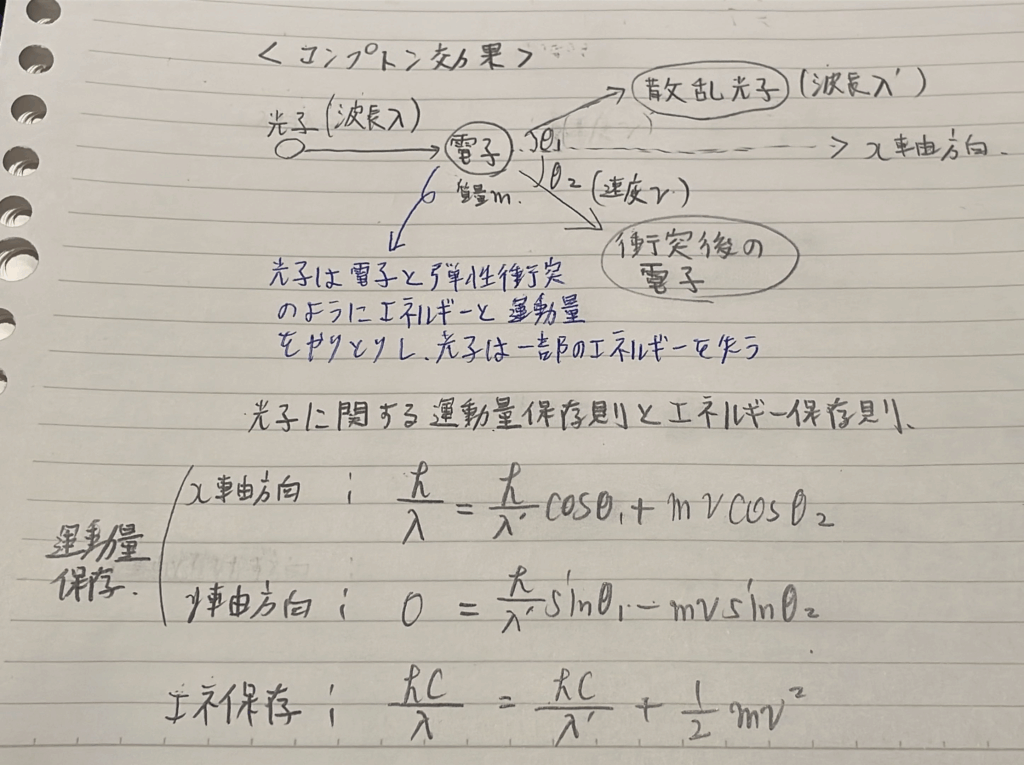 <コンプトン効果>
光子(波長λ)
電子
質量m.
θ₁
散乱光子(波長λ')
x軸方向.
θ₂(速度v)
衝突後の
電子
光子は電子と弾性衝突
のようにエネルギーと運動量
をやりとりし、光子は一部のエネルギーを失う
光子に関する運動量保存則とエネルギー保存則、
運動量
保存.
x軸方向 ; h/λ = h/λ' cosθ₁ + mv cosθ₂
y軸方向 ; 0 = h/λ' sinθ₁ - mv sinθ₂
エネ保存 ; hc/λ = hc/λ' + 1/2 mv²